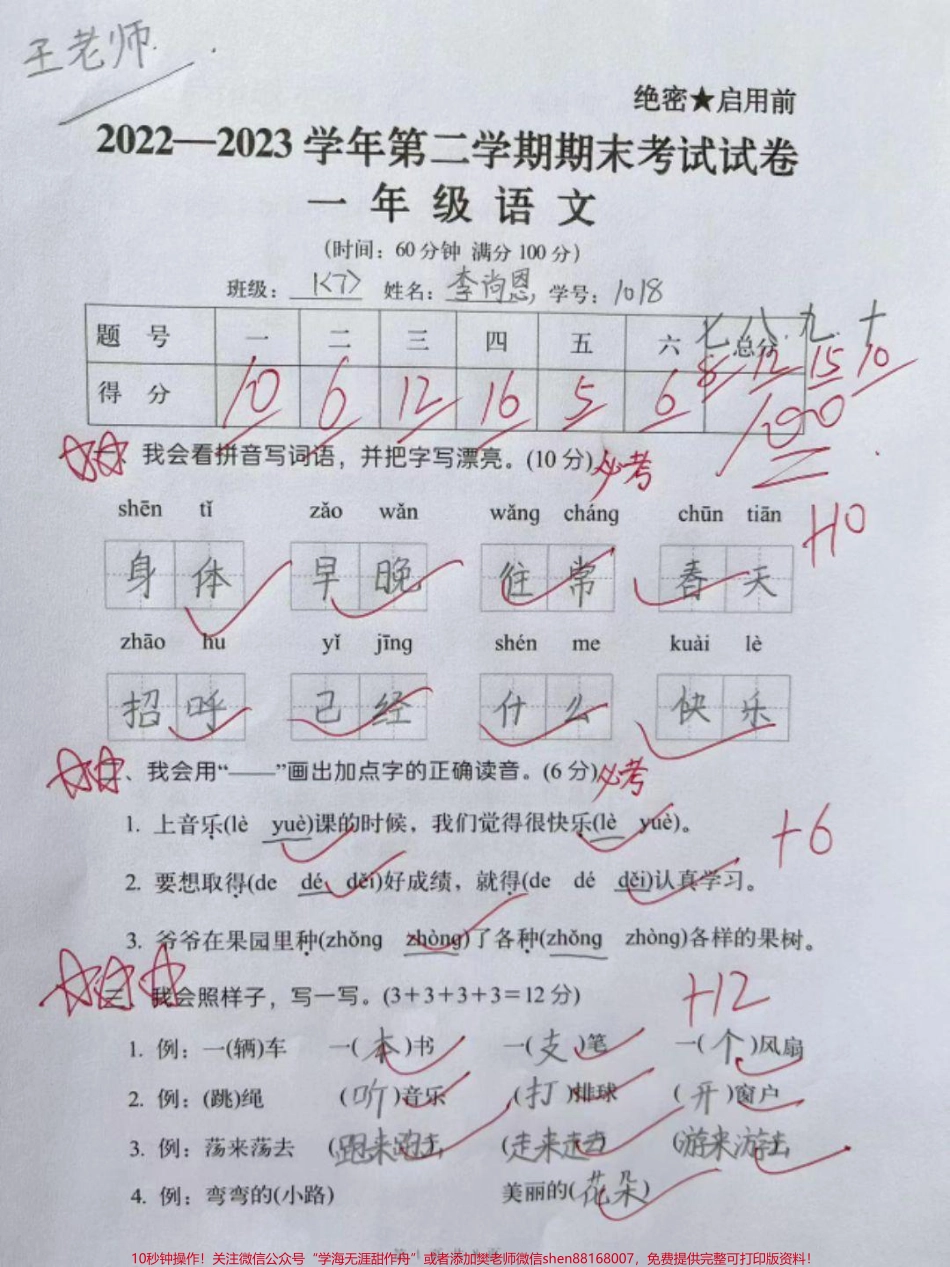 王老师
绝密★启用前
2022—2023 学年第二学期期末考试试卷
一 年 级 语 文
(时间：60 分钟 满分 100 分)
班级：1<7> 姓名：李尚恩 学号：1018
题 号 一 二 三 四 五 六 总分 七 八 九 十
得 分 10 6 12 16 5 6 8 12 15 10
100
我会看拼音写词语，并把字写漂亮。(10 分) 必考
shēn tǐ zǎo wǎn wǎng cháng chūn tiān
+10
身 体 早 晚 往 常 春 天
zhāo hu yǐ jīng shén me kuài lè
招 呼 已 经 什 么 快 乐
、我会用“——”画出加点字的正确读音。(6 分) 必考
1. 上音乐(lè yuè)课的时候，我们觉得很快乐(lè yuè)。
+6
2. 要想取得(de dé děi)好成绩，就得(de dé děi)认真学习。
3. 爷爷在果园里种(zhǒng zhòng)了各种(zhǒng zhòng)各样的果树。
三、我会照样子，写一写。(3+3+3+3=12 分)
+12
1. 例：一(辆)车 一(本)书 一(支)笔 一(个)风扇
2. 例：(跳)绳 (听)音乐 (打)排球 (开)窗户
3. 例：荡来荡去 (跑来跑去 (走来走去) (游来游去
4. 例：弯弯的(小路) 美丽的(花朵)
10秒钟操作！关注微信公众号“学海无涯甜作舟”或者添加樊老师微信shen88168007，免费提供完整可打印版资料！